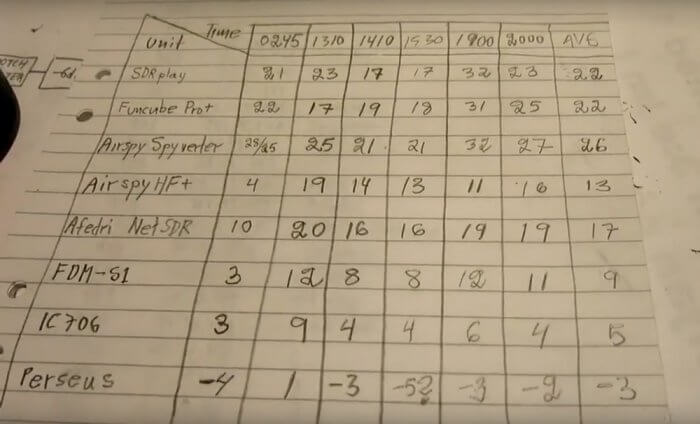 Unit Time 0245 1310 1410 1530 1900 2000 AVE
-6d
SDRplay 21 23 17 17 32 23 22
Funcube Pro+ 22 17 19 18 31 25 22
Airspy Spyverter 28/25 25 21 21 32 27 26
Airspy HF+ 4 19 14 13 11 16 13
Afedri NetSDR 10 20 16 16 19 19 17
FDM-S1 3 12 8 8 12 11 9
IC706 3 9 4 4 6 4 5
Perseus -4 1 -3 -3 -2 -3